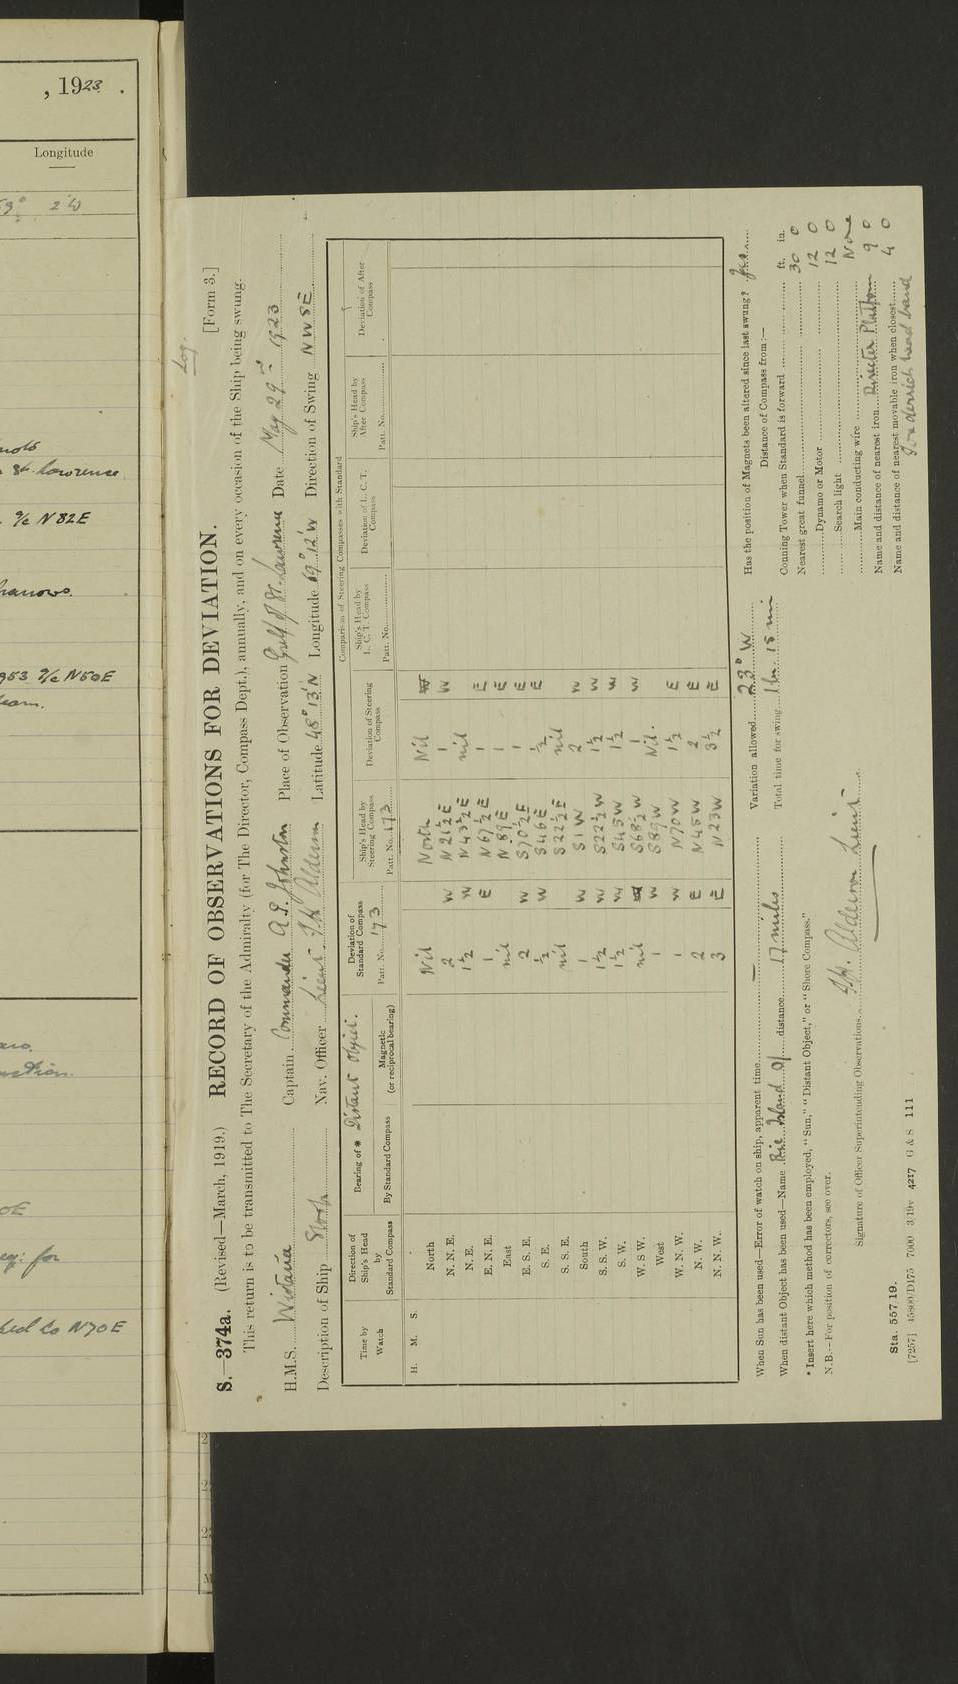 , 1923 .
Longitude
2'W
St. Lawrence
%c N 82 E
%c N50E
Log.
S. 374a. (Revised—March, 1919.) RECORD OF OBSERVATIONS FOR DEVIATION. [Form 3.]
This return is to be transmitted to The Secretary of the Admiralty (for The Director, Compass Dept.), annually, and on every occasion of the Ship being swung.
H.M.S. Wistaria Captain Commander A.P. Johnston Place of Observation Gulf of St. Lawrence Date May 29th 1923
Description of Ship Sloop Nav. Officer Lieut. Alderson Latitude 48° 13' N Longitude 69° 12' W Direction of Swing N W S E
Comparison of Steering Compasses with Standard
Time by Watch | Direction of Ship's Head by Standard Compass | Bearing of * Distant Object. | Deviation of Standard Compass Patt. No. 173 | Ship's Head by Steering Compass Patt. No. 173 | Deviation of Steering Compass | Ship's Head by L. C. T. Compass Patt. No. | Deviation of L. C. T. Compass | Ship's Head by After Compass Patt. No. | Deviation of After Compass
By Standard Compass | Magnetic (or reciprocal bearing)
H. M. S.
North Nil North Nil
N. N. E. 2 W N 21½ E 1 W
N. E. 1½ W N 43½ E nil
E. N. E. 1 E N 67½ E 1 E
East nil N 89 E 1 E
E. S. E. 2 W S 70½ E 1 E
S. E. ½ W S 46 E ½ E
S. S. E. nil S 22½ E nil
South 1 W S 1 W 2 W
S. S. W. 1½ W S 22½ W 1½ W
S. W. 1½ W S 45 W 1½ W
W. S W. nil S 68½ W 1 W
West 1 W S 89 W Nil.
W. N. W. 1 W N 70 W 1½ E
N. W. 2 E N 45 W 2 E
N. N. W. 3 E N 23 W 3½ E
When Sun has been used—Error of watch on ship, apparent time — Variation allowed 23° W
When distant Object has been used—Name Bic Island distance 17 miles Total time for swing 1 hr 15 min
* Insert here which method has been employed, "Sun," "Distant Object," or "Shore Compass."
N.B.—For position of correctors, see over.
Signature of Officer Superintending Observations Alderson Lieut
Has the position of Magnets been altered since last swung? Yes
Distance of Compass from:—
ft. in.
Conning Tower when Standard is forward
Nearest great funnel 30 0
Dynamo or Motor 12 0
Search light 12 0
Main conducting wire None
Name and distance of nearest iron Director Platform 9 0
Name and distance of nearest movable iron when closest 4 0
derrick head band
Sta. 557/19.
[7257] 45800/D175 7000 3/19v 4217 G & S 111
for
N70E